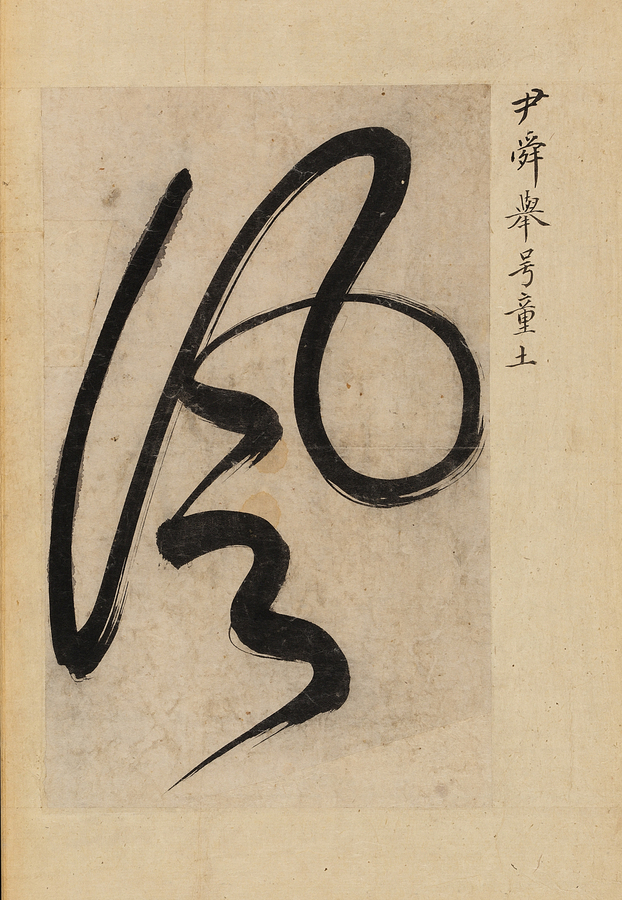 尹舜擧号童土
風